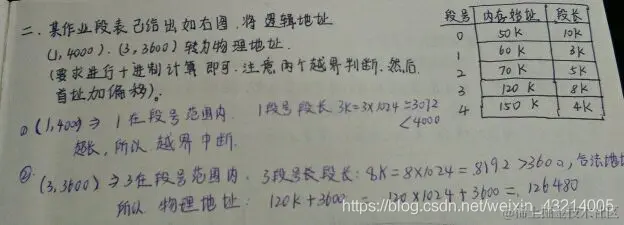 二. 某作业段表已给出如右图. 将逻辑地址
(1, 4000). (3, 3600) 转为物理地址.
(要求进行十进制计算即可. 注意两个越界判断. 然后
首址加偏移)。
段号 内存始址 段长
0 50K 10K
1 60K 3K
2 70K 5K
3 120K 8K
4 150K 4K
① (1,400) ⇒ 1在段号范围内. 1段号段长3K=3×1024=3072
<4000
越长, 所以越界中断.
② (3,3600) ⇒ 3在段号范围内. 3段号长段长: 8K=8×1024=8192>3600, 合法地址
所以 物理地址: 120K+3600 = 120×1024+3600=126480
https://blog.csdn.net/weixin_43214005
@稀土掘金技术社区